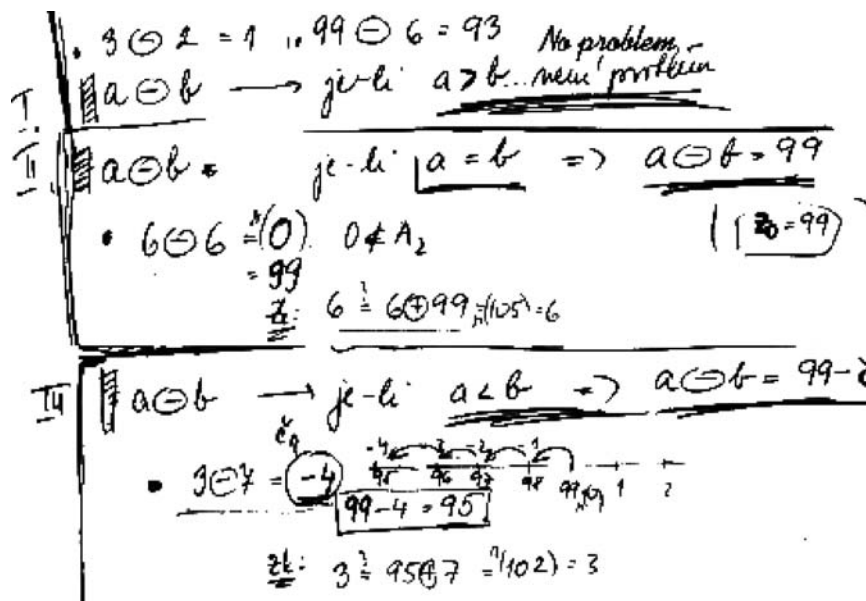 • 3 ⊖ 2 = 1 .. 99 ⊖ 6 = 93 No problem,
I. a ⊖ b → je-li a > b... není problém
II a ⊖ b = je-li a = b => a ⊖ b = 99
• 6 ⊖ 6 = "(0) 0 ∉ A₂ (z₀ = 99)
= 99
Zk: 6 ≟ 6 ⊕ 99 = "(105) = 6
III a ⊖ b → je-li a < b => a ⊖ b = 99 - č
č₉
-4 -3 -2 -1
• 3 ⊖ 7 = -4 95 96 97 98 99 "(0) 1 2
99 - 4 = 95
zk: 3 ≟ 95 ⊕ 7 = "(102) = 3